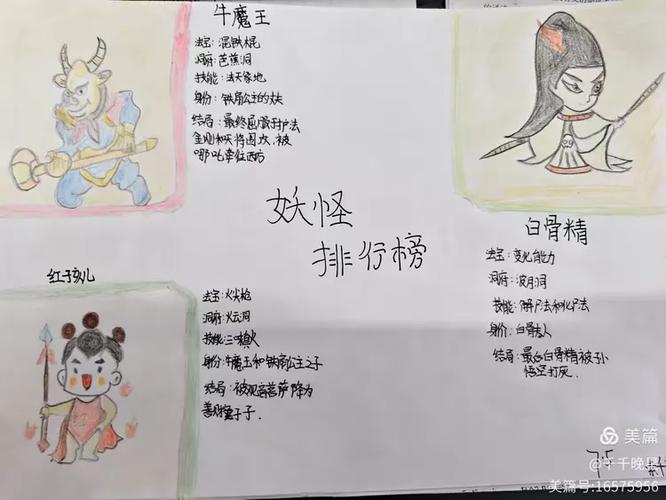 牛魔王
法宝：混铁棍
洞府：芭蕉洞
技能：法天象地
身份：铁扇公主的丈夫
结局：最终屈服于护法
金刚和天将围攻，被
哪吒牵住西方
妖怪
排行榜
白骨精
法宝：变化能力
洞府：波月洞
技能：解尸法和化尸法
身份：白骨夫人
结局：最后白骨精被孙
悟空打死．
红孩儿
法宝：火尖枪
洞府：火云洞
技能：三昧真火
身份：牛魔王和铁扇公主之子
结局：被观音菩萨降为
善财童子．
美篇
@千千晚星
美篇号:16575956